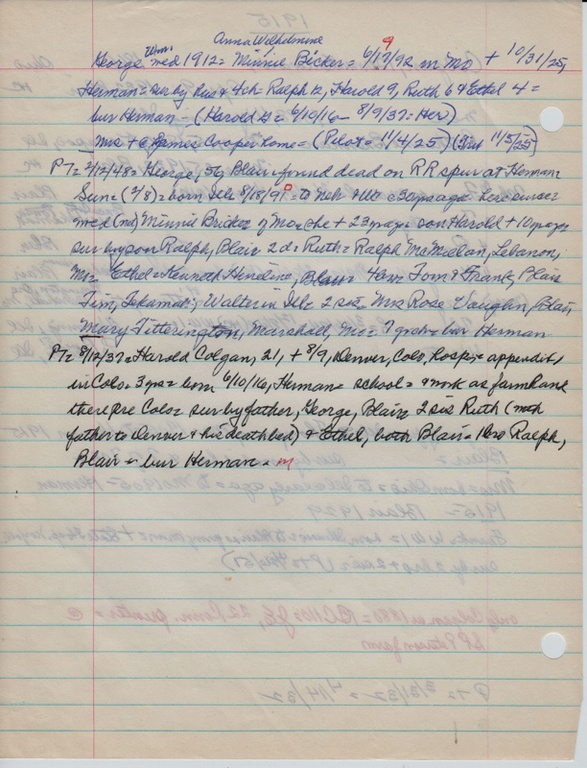 Anna Wilhelmine 9
George Wm. med 1912 = Minnie Bicker = 6/17/92 in Mo + 10/31/25,
Herman = sur by hus & 4 ch = Ralph 12, Harold 9, Ruth 6 & Ethel 4 =
bur Herman - (Harold = 6/10/16 - 8/9/37 = Her)
Mrs + @ James Cooper home = (Pilot = 11/4/25) 11/5/25)
PT = 2/12/48 = George, 56 Blair found dead on RR spur at Herman
Sun (2/8) = born Ills 8/18/91 = to Neb 30 yrs ago = here since
med (nd) Minnie Bricker of Mo = she + 23 yrs ago son Harold + 10 yrs ago
sur by son Ralph, Blair 2 ds = Ruth = Ralph McMillan, Lebanon,
Mo = Ethel = Kenneth Hineline, Blair = 4 bros = Tom & Frank, Blair
Jim, Tekamah; Walter in Ills = 2 sis = Mrs Rose Vaughn, Blair
Mary Titterington, Marshall, Mo = 7 grch = bur Herman
PT = 8/12/37 = Harold Colgan, 21, + 8/9, Denver, Colo, hosp = appendix,
in Colo = 3 yrs = born 6/10/16, Herman = school = & work as farm hand
there Colo = sur by father, George, Blair 2 sis Ruth (with
father to Denver & his death bed) & Ethel, both Blair = 1 bro Ralph,
Blair = bur Herman = m